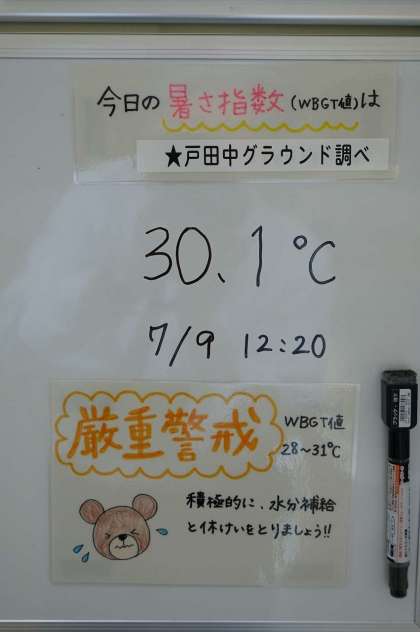 今日の暑さ指数(WBGT値)は
★戸田中グラウンド調べ
30.1℃
7/9 12:20
厳重警戒
WBGT値
28~31℃
積極的に、水分補給
と休けいをとりましょう!!